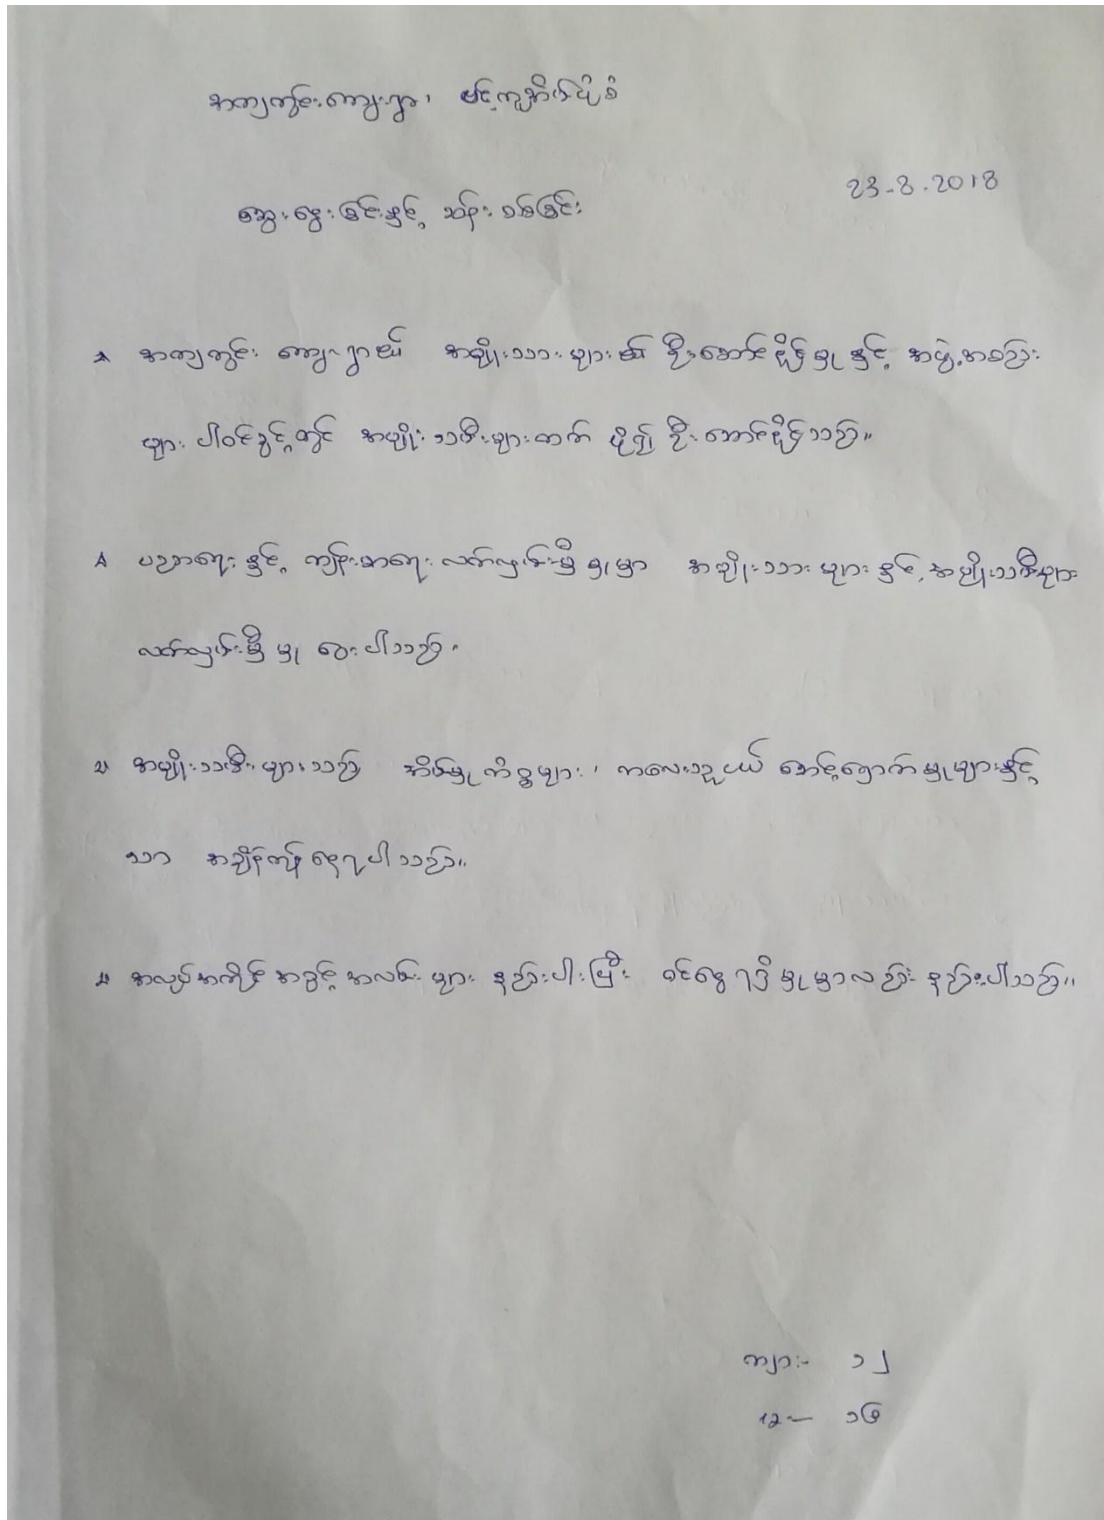 အကျကွင်းကျေးရွာ၊
23-8-2018
ဆွေးနွေးခြင်းနှင့် ဆန်းစစ်ခြင်း
အကျကွင်း ကျေးရွာ၏ အမျိုးသားများ၏ ဦးဆောင်နိုင်မှုနှင့် အဖွဲ့အစည်း
များ ပါဝင်ခွင့်တွင် အမျိုးသမီးများထက် ပို၍ ဦးဆောင်နိုင်သည်။
ပညာရေးနှင့် ကျန်းမာရေး လက်လှမ်းမှီမှုမှာ အမျိုးသားများနှင့် အမျိုးသမီးများ
လက်လှမ်းမှီမှု ဝေးပါသည်။
အမျိုးသမီးများသည် အိမ်မှုကိစ္စများ၊ ကလေးသူငယ် စောင့်ရှောက်မှုများနှင့်
သာ အချိန်ကုန်နေရပါသည်။
အလုပ်အကိုင်အခွင့်အလမ်းများ နည်းပါးပြီး ဝင်ငွေရရှိမှုမှာလည်း နည်းပါသည်။
ကျား- ၁၂
၁၆